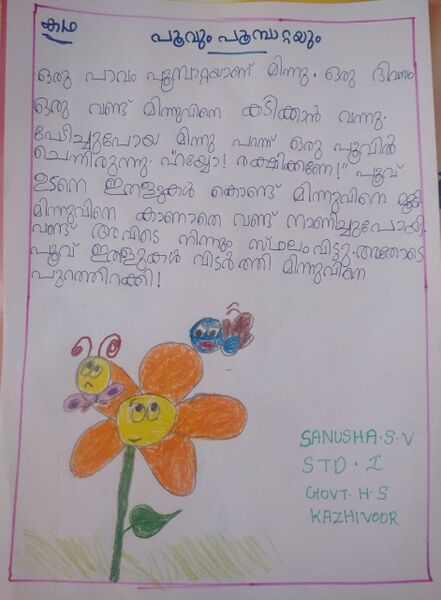 കഥ
പൂവും പൂമ്പാറ്റയും
ഒരു പാവം പൂമ്പാറ്റയാണ് മിന്നു. ഒരു ദിവസം
ഒരു വണ്ട് മിന്നുവിനെ കടിക്കാൻ വന്നു.
പേടിച്ചുപോയ മിന്നു പറന്ന് ഒരു പൂവിൽ
ചെന്നിരുന്നു. "അയ്യോ! രക്ഷിക്കണേ!" പൂവ്
ഉടനെ ഇതളുകൾ കൊണ്ട് മിന്നുവിനെ മൂടി.
മിന്നുവിനെ കാണാതെ വണ്ട് നാണിച്ചുപോയി.
വണ്ട് അവിടെ നിന്നും സ്ഥലംവിട്ടു. അതോടെ
പൂവ് ഇതളുകൾ വിടർത്തി മിന്നുവിനെ
പുറത്തിറക്കി!
SANUSHA.S.V
STD. I
GOVT. H.S
KAZHIVOOR